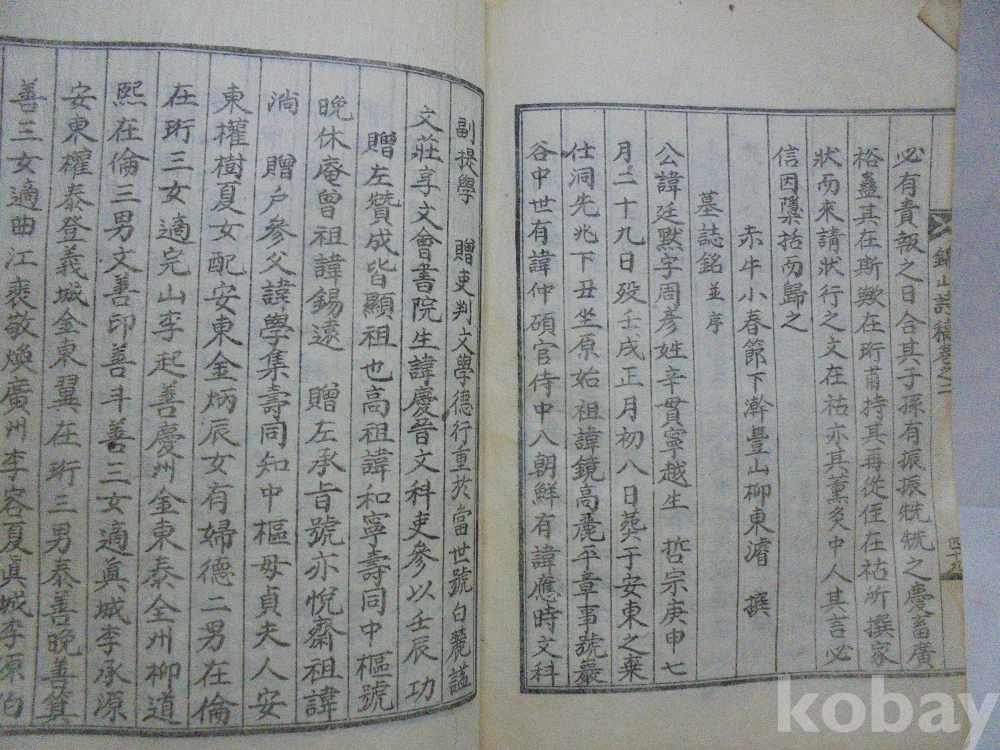 必有責報之日合其子孫有振振兟兟之慶畜廣
裕蠱其在斯歟在珩甫持其再從侄在祜所撰家
狀而來請狀行之文在祜亦其薰炙中人其言必
信因檃括而歸之
赤牛小春節下澣豊山柳東濬 撰
墓誌銘並序
公諱廷黙字周彦姓辛貫寧越生 哲宗庚申七
月二十九日歿壬戌正月初八日葬于安東之乗
仕洞先兆下丑坐原始祖諱鏡高麗平章事號巖
谷中世有諱仲碩官侍中入朝鮮有諱應時文科
副提學 贈吏判文學德行重於當世號白麓謚
文莊享文會書院生諱慶晉文科吏參以壬辰功
贈左贊成皆顯祖也高祖諱和寧壽同中樞號
晩休庵曾祖諱錫遠 贈左承旨號亦悅齋祖諱
淌 贈户參父諱學集壽同知中樞母貞夫人安
東權樹夏女配安東金炳辰女有婦德二男在倫
在珩三女適完山李起善慶州金東泰全州柳道
熙在倫三男文善印善斗善三女適眞城李承源
安東權泰登義城金東翼在珩三男泰善晩善箕
善三女適曲江裵敬煥廣州李容夏眞城李源伯
山詩稿卷之二
四九
kobay